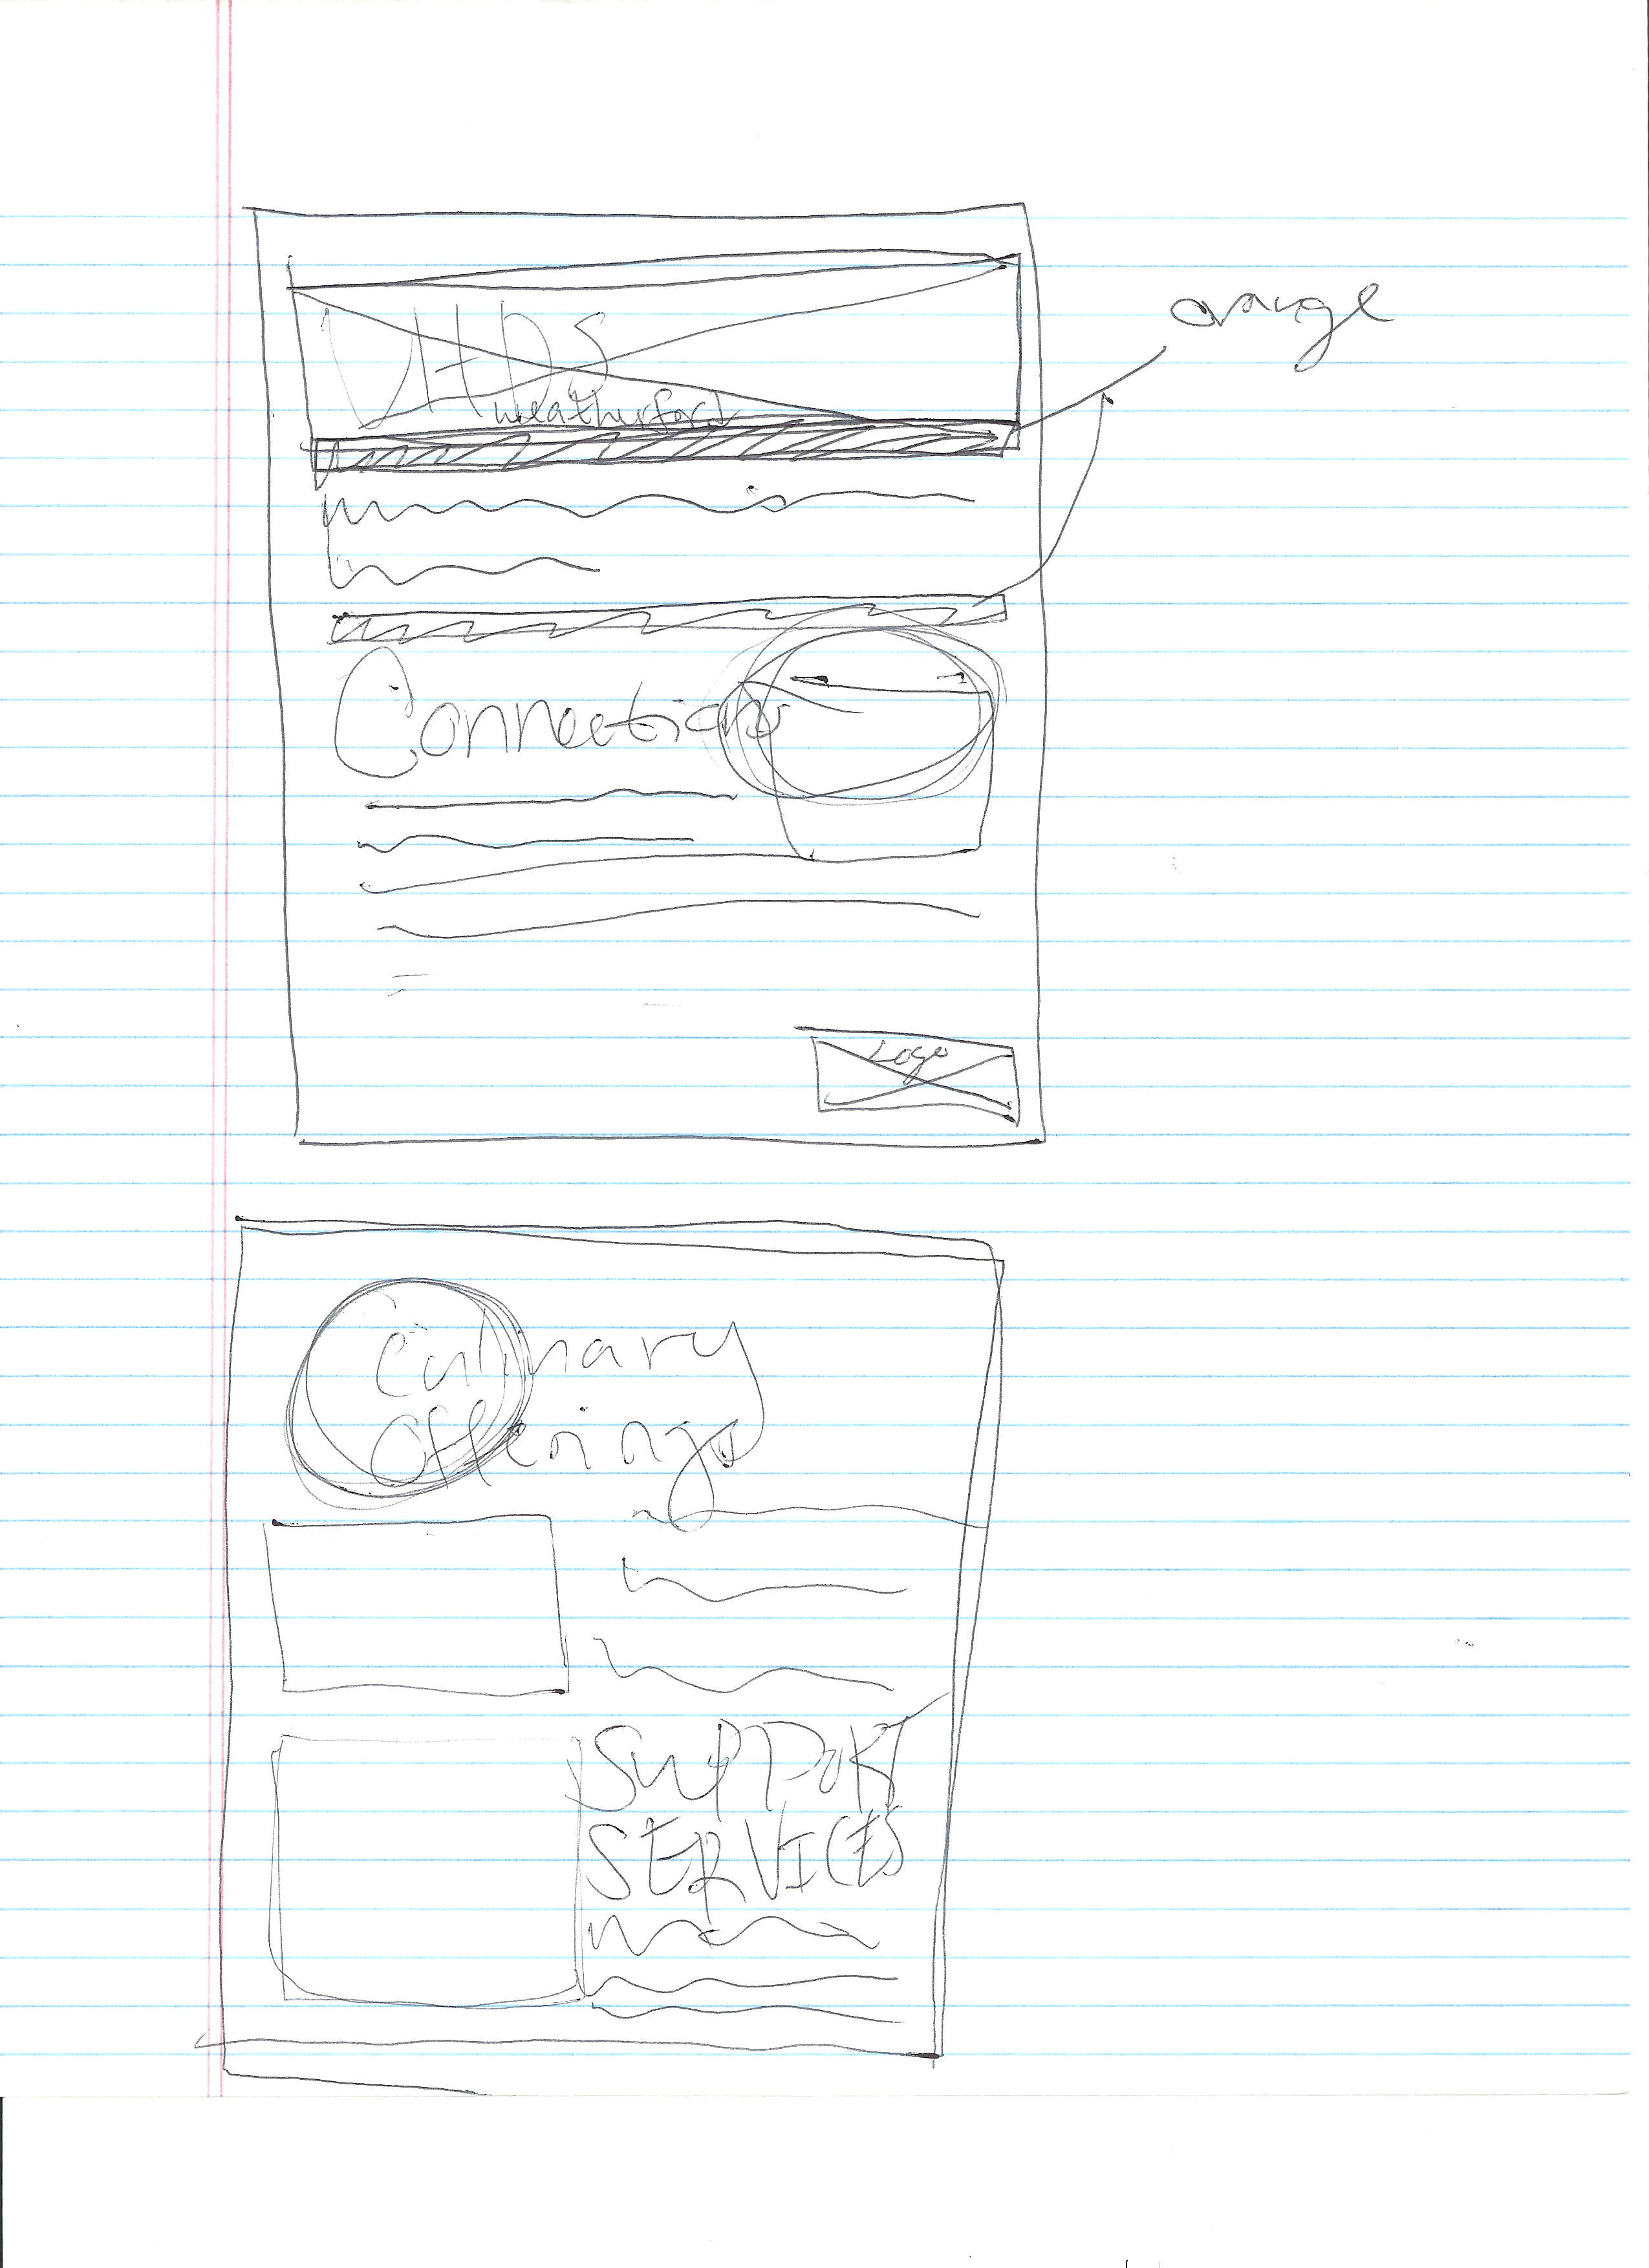 orange
UHDS
weatherford
Connections
Logo
Culinary
Offerings
SUPPORT
SERVICES